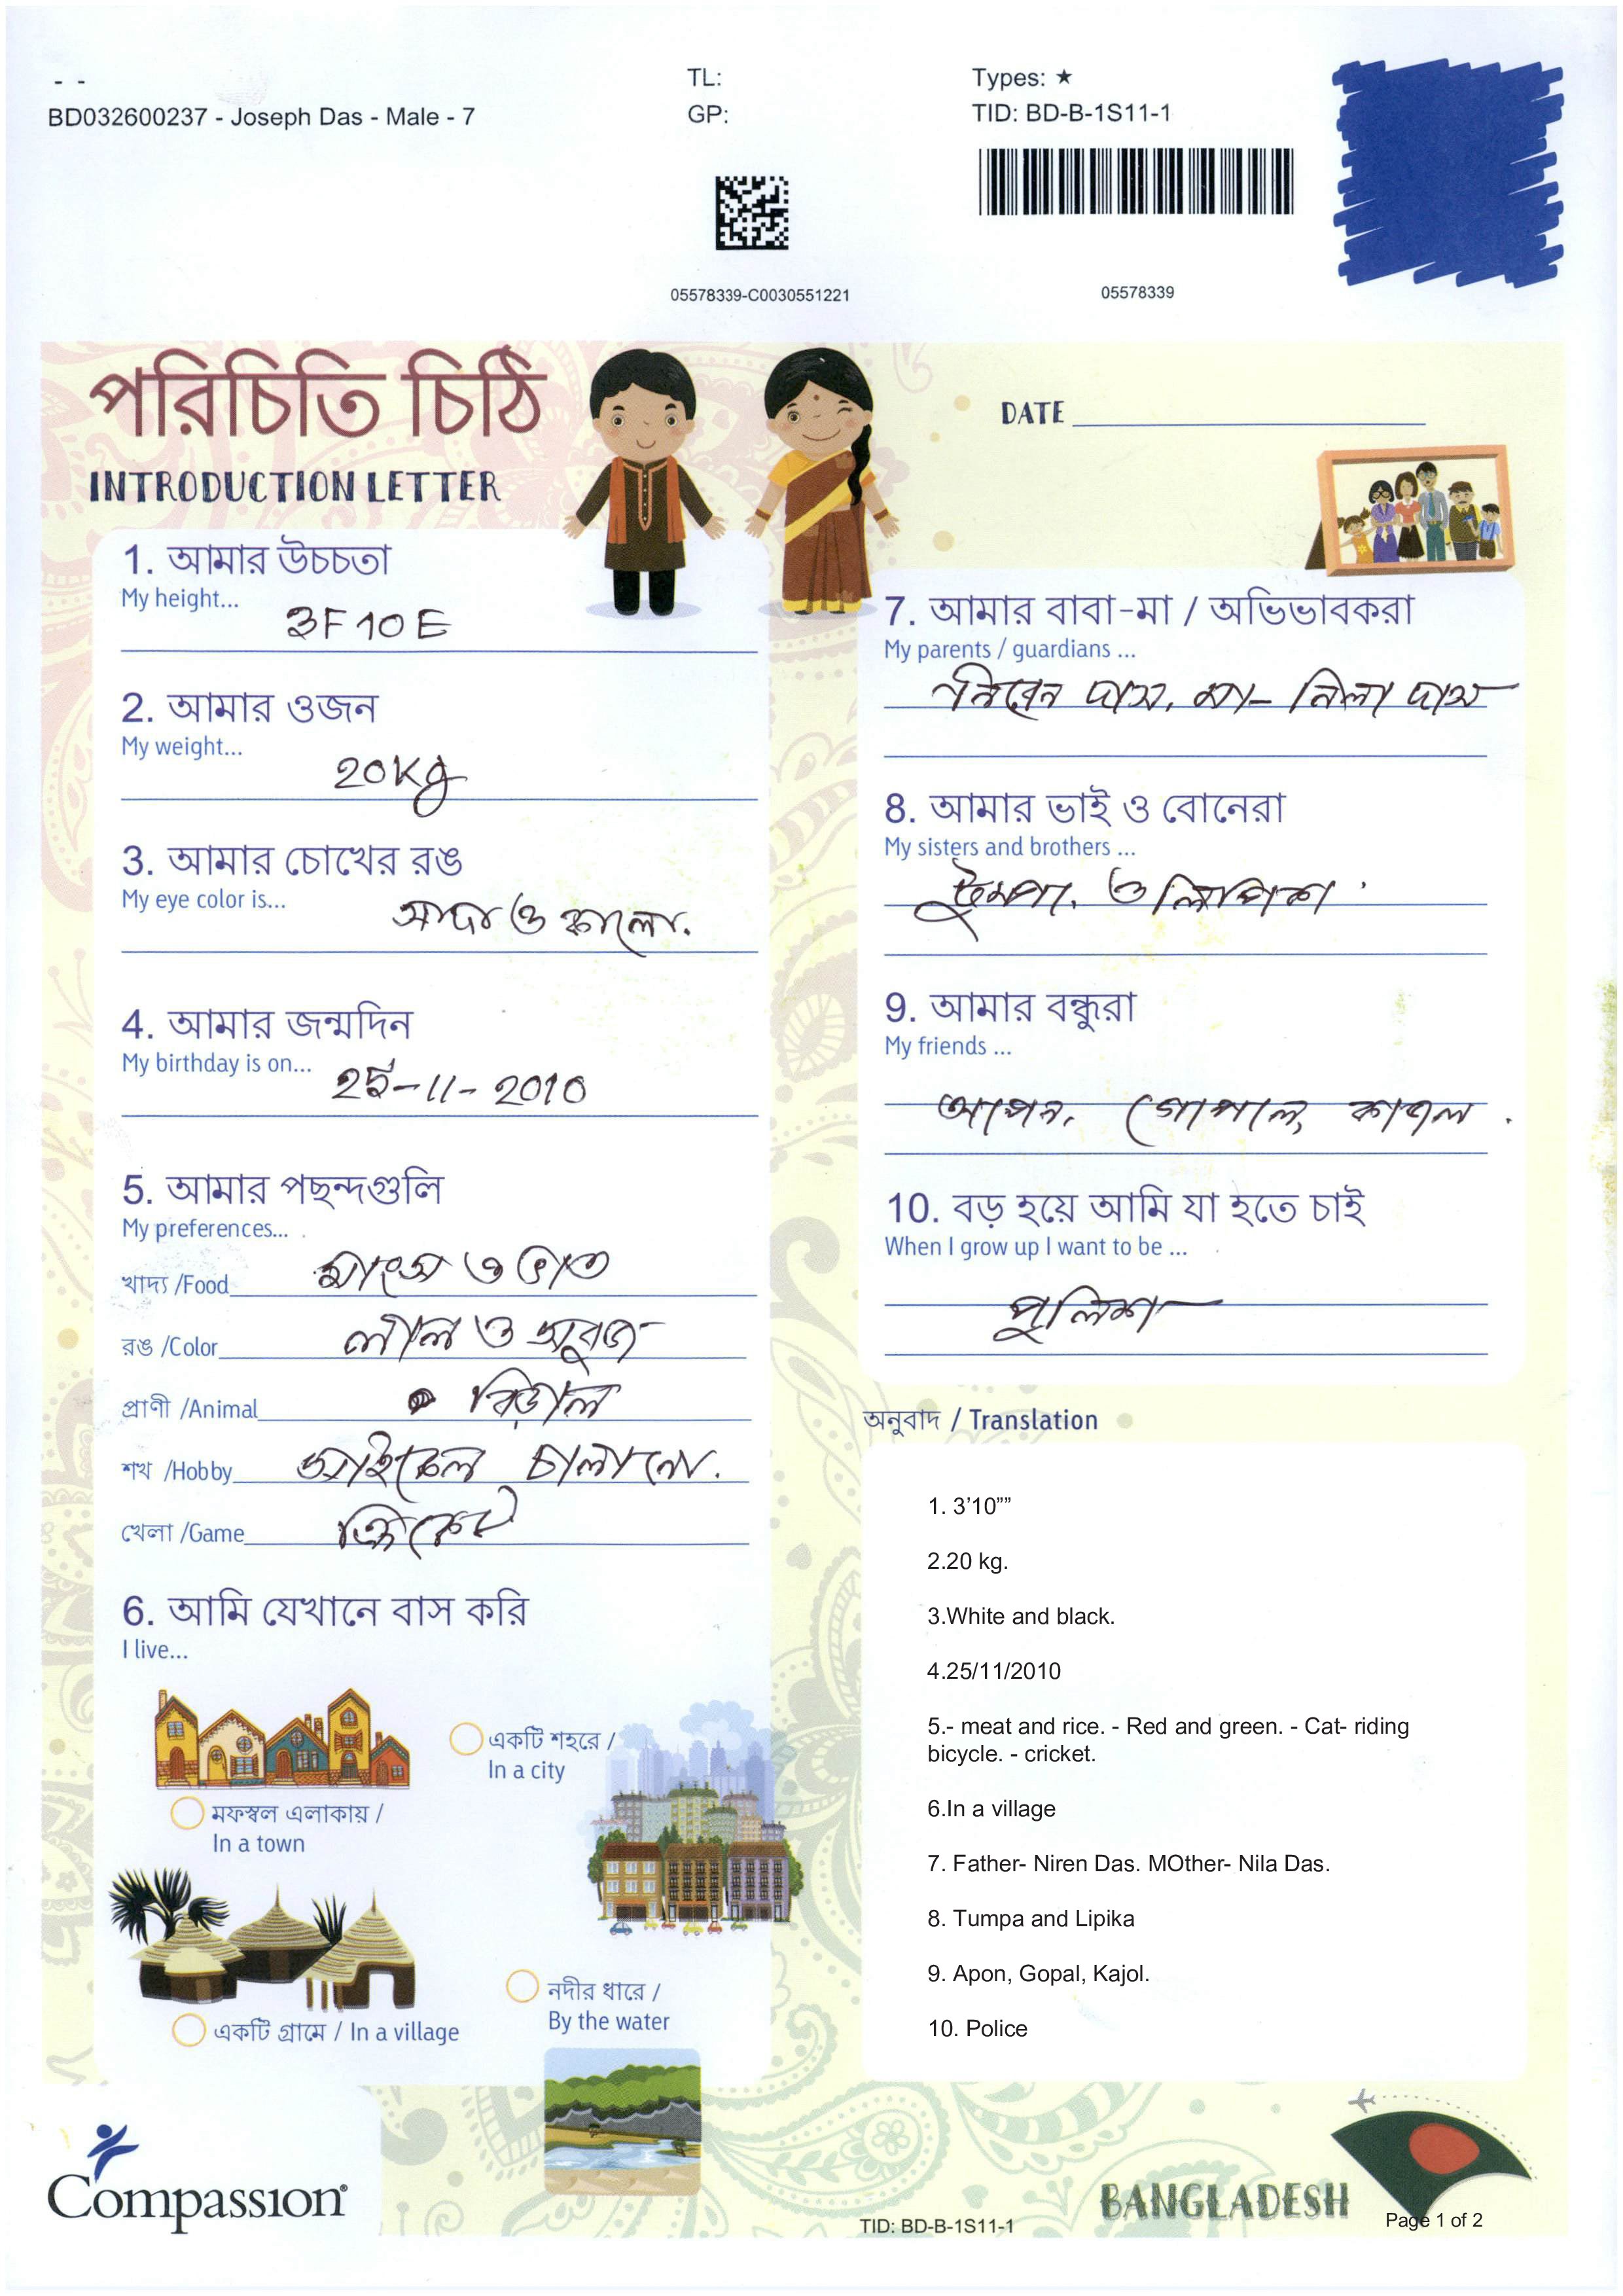 - -
BD032600237 - Joseph Das - Male - 7
TL:
GP:
Types: ★
TID: BD-B-1S11-1
05578339-C0030551221
05578339
পরিচিতি চিঠি
INTRODUCTION LETTER
DATE
1. আমার উচচতা
My height...
3F 10 E
2. আমার ওজন
My weight...
20Kg
3. আমার চোখের রঙ
My eye color is...
সাদা ও কালো.
4. আমার জন্মদিন
My birthday is on...
25-11-2010
5. আমার পছন্দগুলি
My preferences...
খাদ্য /Food মাংস ও ভাত
রঙ /Color লাল ও সবুজ
প্রাণী /Animal বিড়াল
শখ /Hobby সাইকেল চালানো.
খেলা /Game ক্রিকেট
6. আমি যেখানে বাস করি
I live...
একটি শহরে /
In a city
মফস্বল এলাকায় /
In a town
নদীর ধারে /
By the water
একটি গ্রামে / In a village
7. আমার বাবা-মা / অভিভাবকরা
My parents / guardians ...
নিরেন দাস, মা- নিলা দাস
8. আমার ভাই ও বোনেরা
My sisters and brothers ...
টুমপা, ও লিপিকা
9. আমার বন্ধুরা
My friends ...
আপন, গোপাল, কাজল.
10. বড় হয়ে আমি যা হতে চাই
When I grow up I want to be ...
পুলিশ
অনুবাদ / Translation
1. 3’10””
2.20 kg.
3.White and black.
4.25/11/2010
5.- meat and rice. - Red and green. - Cat- riding
bicycle. - cricket.
6.In a village
7. Father- Niren Das. MOther- Nila Das.
8. Tumpa and Lipika
9. Apon, Gopal, Kajol.
10. Police
Compassion®
TID: BD-B-1S11-1
BANGLADESH
Page 1 of 2